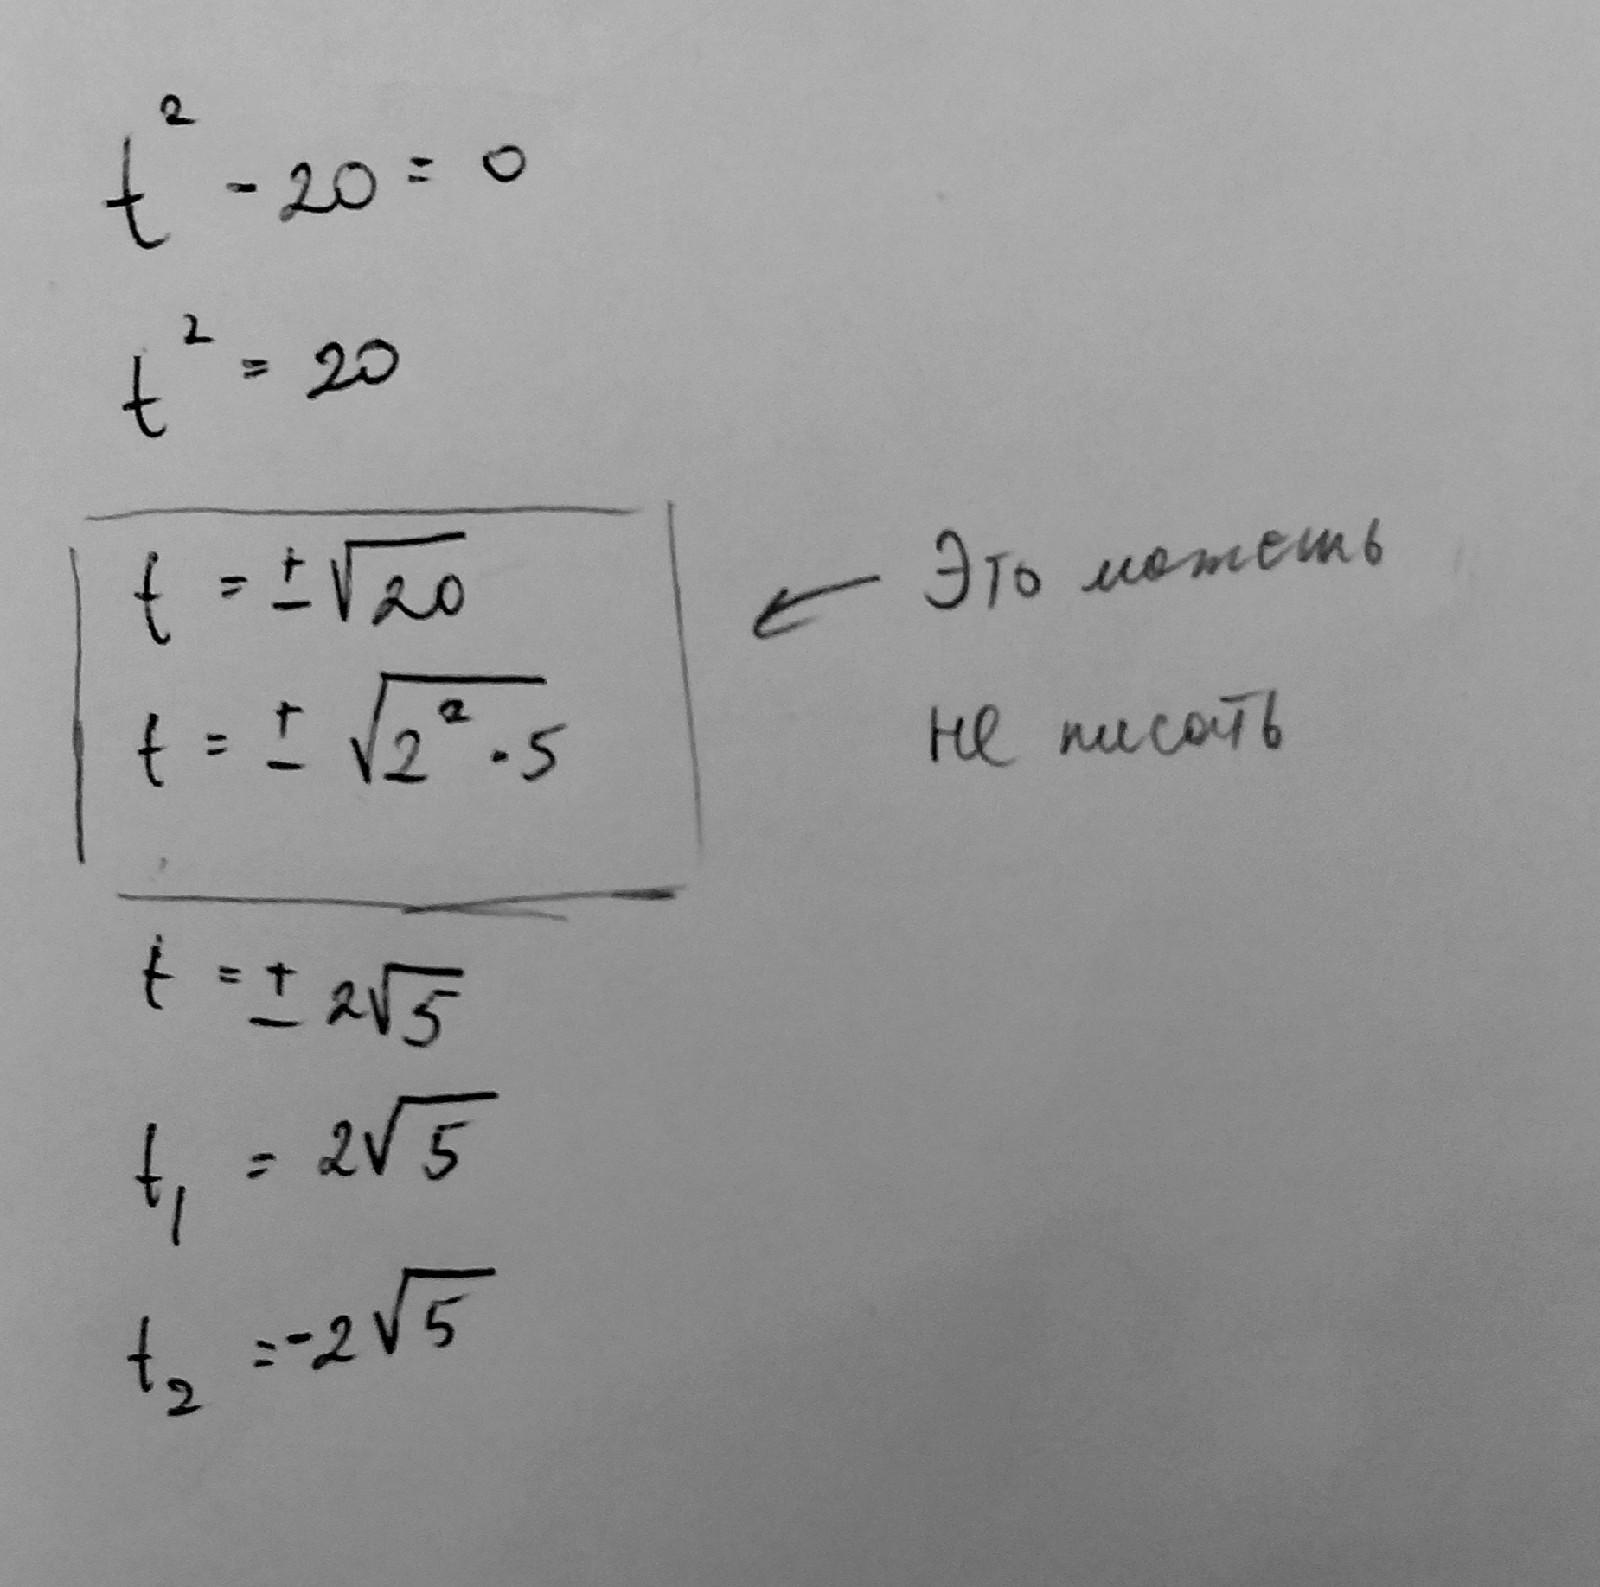 t² - 20 = 0
t² = 20
t = ±√20
t = ±√2²·5
Это можешь
не писать
t = ± 2√5
t₁ = 2√5
t₂ = -2√5